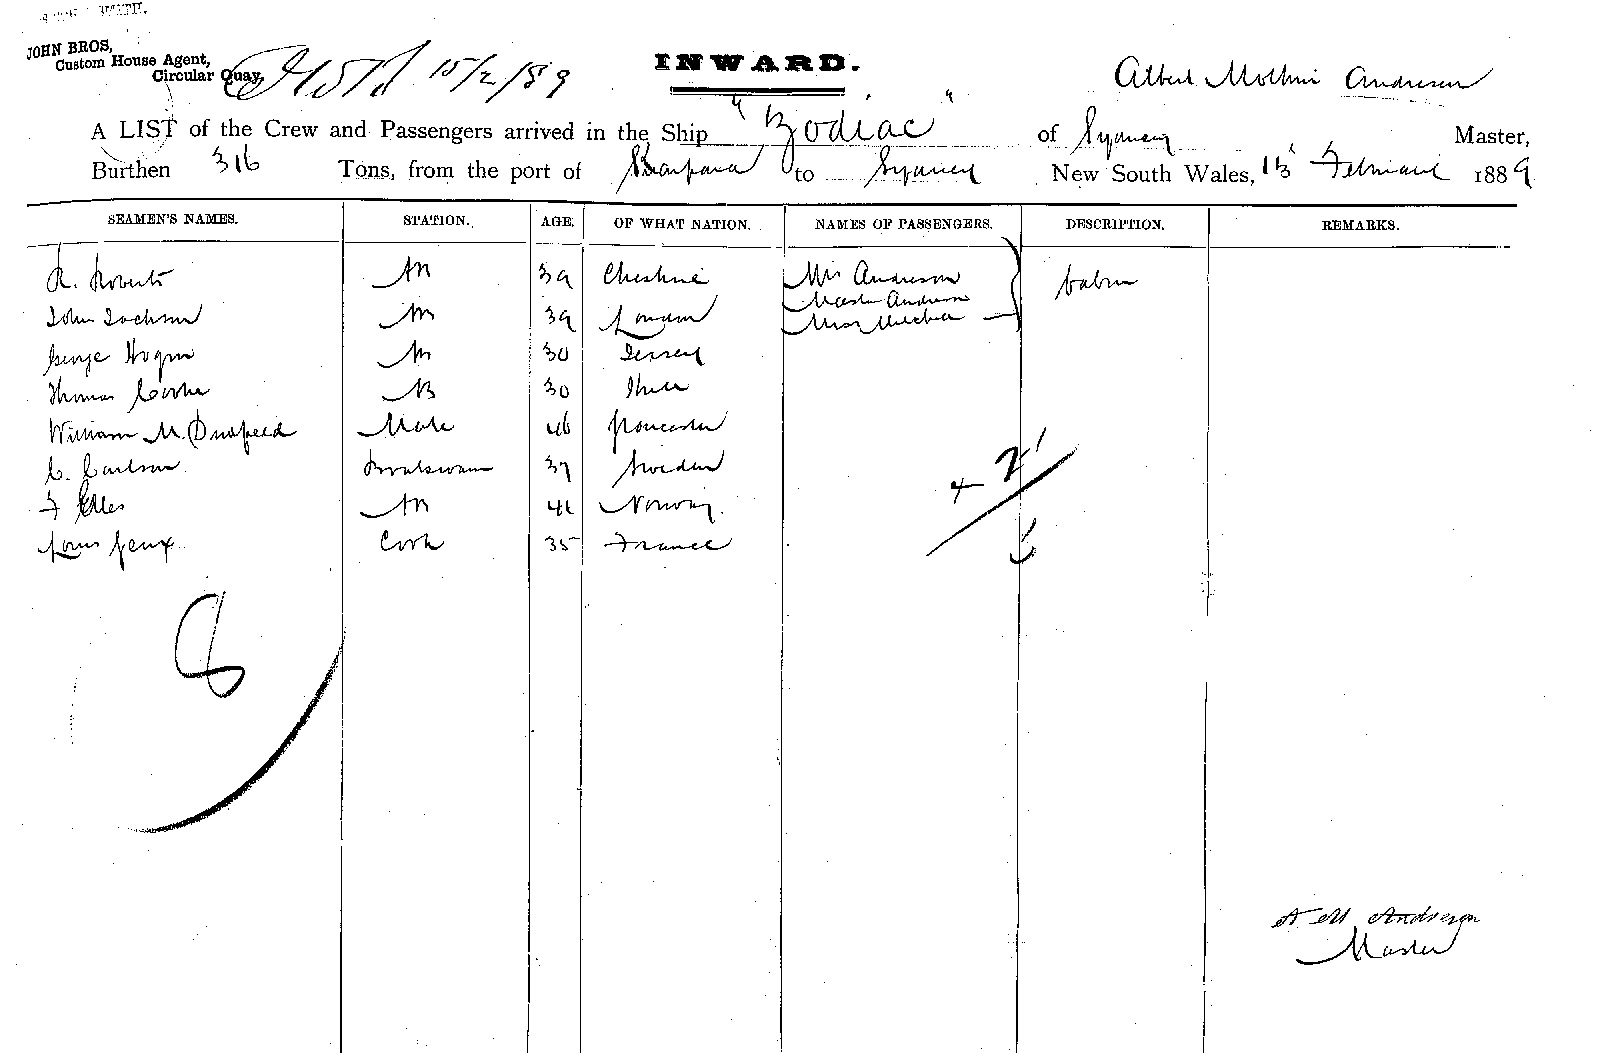 JOHN BROS,
Custom House Agent,
Circular Quay,
15/2/89
INWARD.
Albert Andresen
A LIST of the Crew and Passengers arrived in the Ship "Zodiac" of Sydney Master,
Burthen 316 Tons, from the port of to Sydney New South Wales, 15 1889
SEAMEN'S NAMES. STATION. AGE. OF WHAT NATION. NAMES OF PASSENGERS. DESCRIPTION. REMARKS.
R. Roberts AB 39 Cheshire Mrs Andreson Cabin
John Jackson AB 39 London Master Andreson
Miss
George Hogan AB 30 Jersey
Thomas Cooke AB 30 Hull
William M. Mate 46 Gloucester
C. Carlson Boatswain 37 Sweden
F AB 41 Norway.
Louis Cook 35 France
+ 2
8
A M Andreson
Master